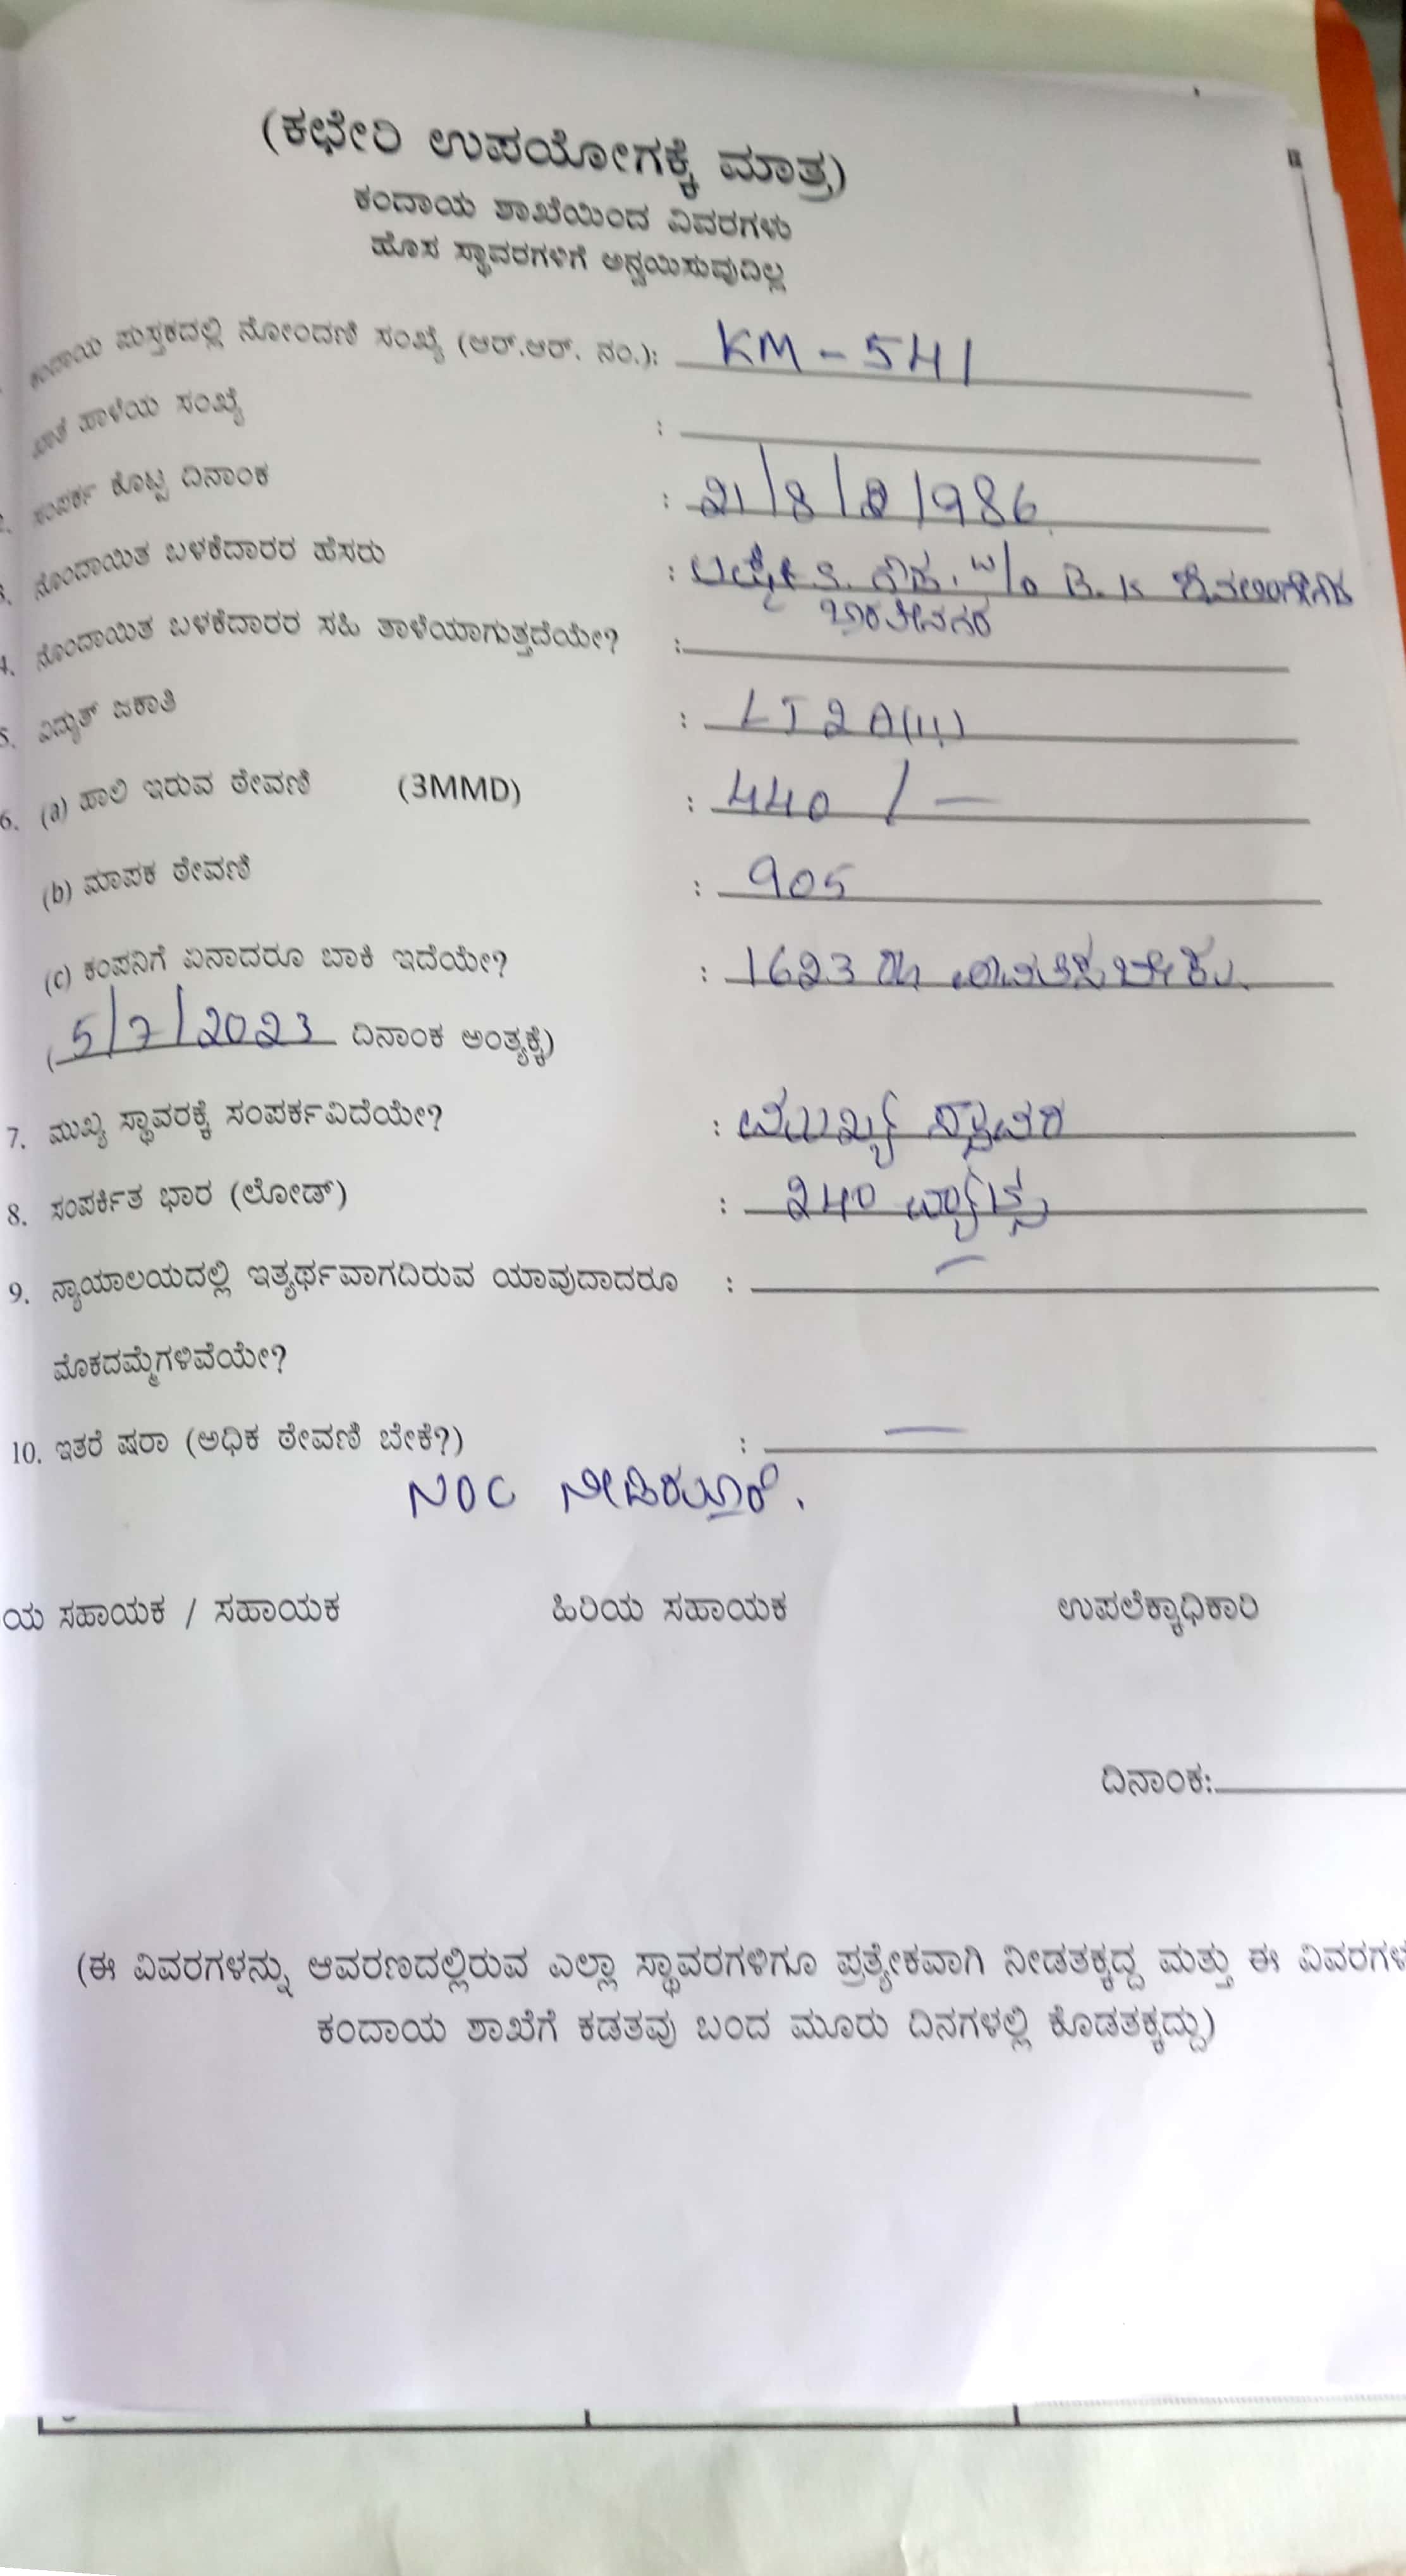 (ಕಛೇರಿ ಉಪಯೋಗಕ್ಕೆ ಮಾತ್ರ)
ಕಂದಾಯ ಶಾಖೆಯಿಂದ ವಿವರಗಳು
ಹೊಸ ಸ್ಥಾವರಗಳಿಗೆ ಅನ್ವಯಿಸುವುದಿಲ್ಲ
ಕಂದಾಯ ಪುಸ್ತಕದಲ್ಲಿ ನೋಂದಣಿ ಸಂಖ್ಯೆ (ಆರ್.ಆರ್. ನಂ.): KM - 541
ಖಾತೆ ಹಾಳೆಯ ಸಂಖ್ಯೆ :
2. ಸಂಪರ್ಕ ಕೊಟ್ಟ ದಿನಾಂಕ : 21/8/1986
3. ನೊಂದಾಯಿತ ಬಳಕೆದಾರರ ಹೆಸರು : S. W/o B. K
ಭಾರತೀನಗರ
4. ನೊಂದಾಯಿತ ಬಳಕೆದಾರರ ಸಹಿ ತಾಳೆಯಾಗುತ್ತದೆಯೇ? :
5. ವಿದ್ಯುತ್ ಜಕಾತಿ : LT2A(ii)
6. (a) ಹಾಲಿ ಇರುವ ಠೇವಣಿ (3MMD) : 440 / —
(b) ಮಾಪಕ ಠೇವಣಿ : 905
(c) ಕಂಪನಿಗೆ ಏನಾದರೂ ಬಾಕಿ ಇದೆಯೇ? : 1623 ರೂ ಪಾವತಿಸಬೇಕು.
(5/7/2023 ದಿನಾಂಕ ಅಂತ್ಯಕ್ಕೆ)
7. ಮುಖ್ಯ ಸ್ಥಾವರಕ್ಕೆ ಸಂಪರ್ಕವಿದೆಯೇ? : ಮುಖ್ಯ ಸ್ಥಾವರ
8. ಸಂಪರ್ಕಿತ ಭಾರ (ಲೋಡ್) : 240 ವ್ಯಾಟ್ಸ್
9. ನ್ಯಾಯಾಲಯದಲ್ಲಿ ಇತ್ಯರ್ಥವಾಗದಿರುವ ಯಾವುದಾದರೂ : —
ಮೊಕದಮ್ಮೆಗಳಿವೆಯೇ?
10. ಇತರೆ ಷರಾ (ಅಧಿಕ ಠೇವಣಿ ಬೇಕೆ?) : —
NOC ನೀಡಿರುತ್ತಾರೆ.
ಯ ಸಹಾಯಕ / ಸಹಾಯಕ ಹಿರಿಯ ಸಹಾಯಕ ಉಪಲೆಕ್ಕಾಧಿಕಾರಿ
ದಿನಾಂಕ:
(ಈ ವಿವರಗಳನ್ನು ಆವರಣದಲ್ಲಿರುವ ಎಲ್ಲಾ ಸ್ಥಾವರಗಳಿಗೂ ಪ್ರತ್ಯೇಕವಾಗಿ ನೀಡತಕ್ಕದ್ದ ಮತ್ತು ಈ ವಿವರಗಳ
ಕಂದಾಯ ಶಾಖೆಗೆ ಕಡತವು ಬಂದ ಮೂರು ದಿನಗಳಲ್ಲಿ ಕೊಡತಕ್ಕದ್ದು)